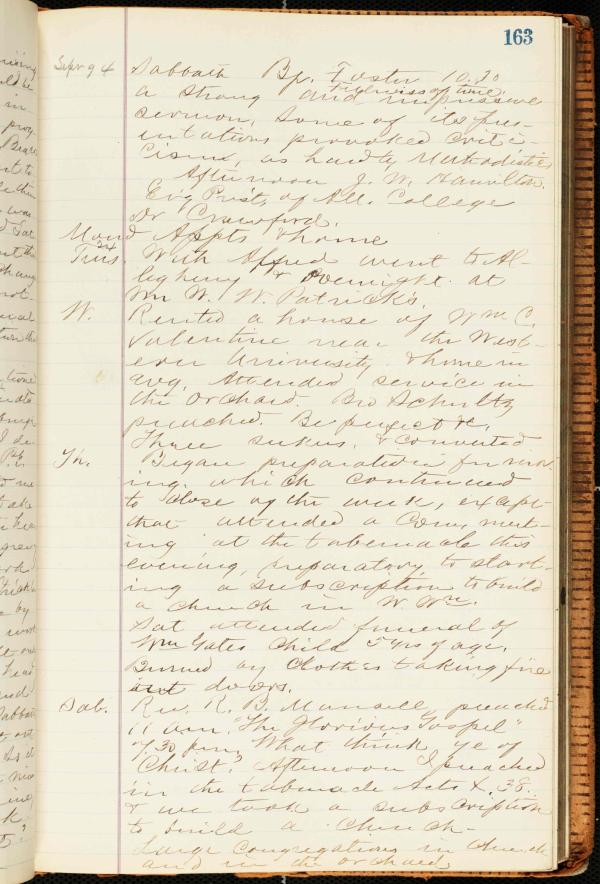 163
Sepr 94 Sabbath Bp. Foster 10.30
Fulness of time.
a strong and impressive
sermon, some of its pres-
entations provoked criti-
cisms, as hardly Methodistic
Afternoon J. W. Hamilton.
Evg Prest of All. College
Dr Crawford.
Mond Appts & home
Tues. 24 With Alfred went to Al-
legheny & overnight at
Wm W. W. Patricks.
W. Rented a house of Wm C.
Valentine near the West-
ern University. & home in
evg. Attended service in
the Orchard. Bro Schultz
preached. Be perfect &c.
Three seekers, & converted
Th. Began preparation for mov-
ing, which continued
to close of the week, except
that attended a Com. meet-
ing at the tabernacle this
evening, preparatory to start-
ing a subscription to build
a church in W. Wn.
Sat attended funeral of
Wm Yates Child 5 yrs of age.
Burned by Clothes taking fire
out doors.
Sab. Rev. R. B. Mansell preached
11 am. "The Glorious Gospel"
7.30 pm, What think ye of
Christ? Afternoon I preached
in the tabernacle Acts X. 38.
& we took a subscription
to build a church-
Large Congregations in Church
and in the orchard